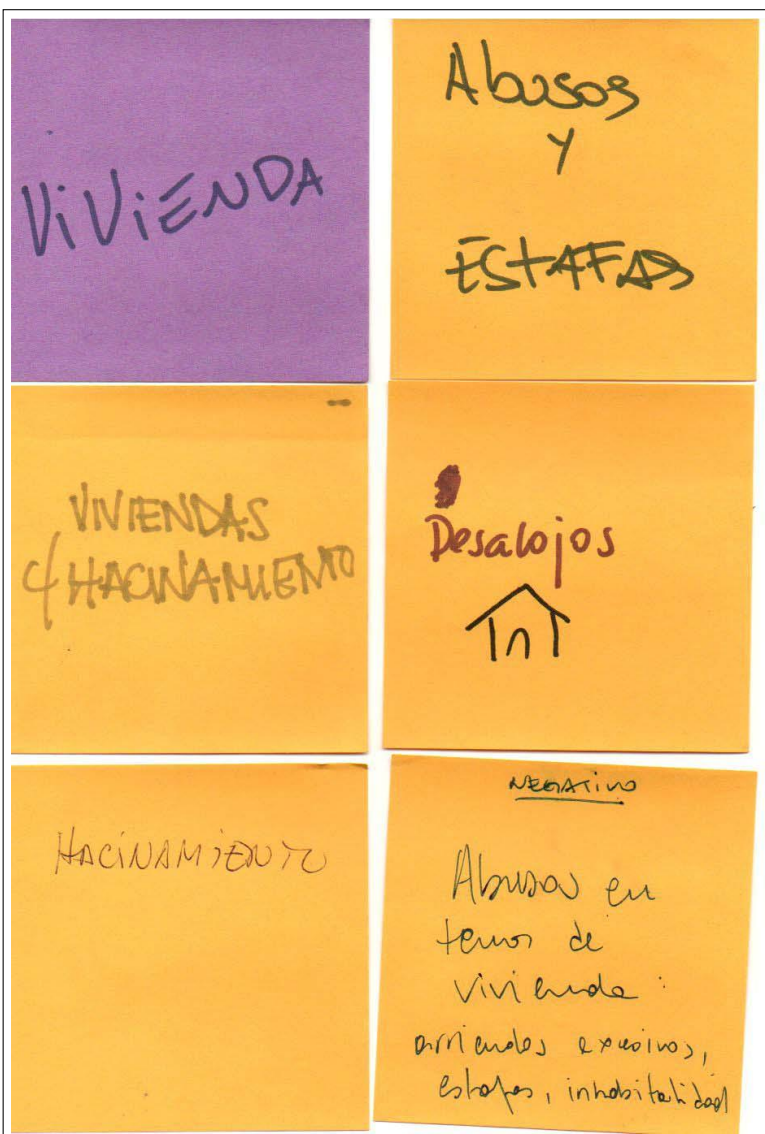 ViViENDA
Abusos
Y
ESTAFAS
VIVIENDAS
C/HACINAMIENTO
Desalojos
HACINAMiENTO
NEGATIVO
Abusos en
temas de
vivienda:
arriendos excesivos,
estafas, inhabitalidad